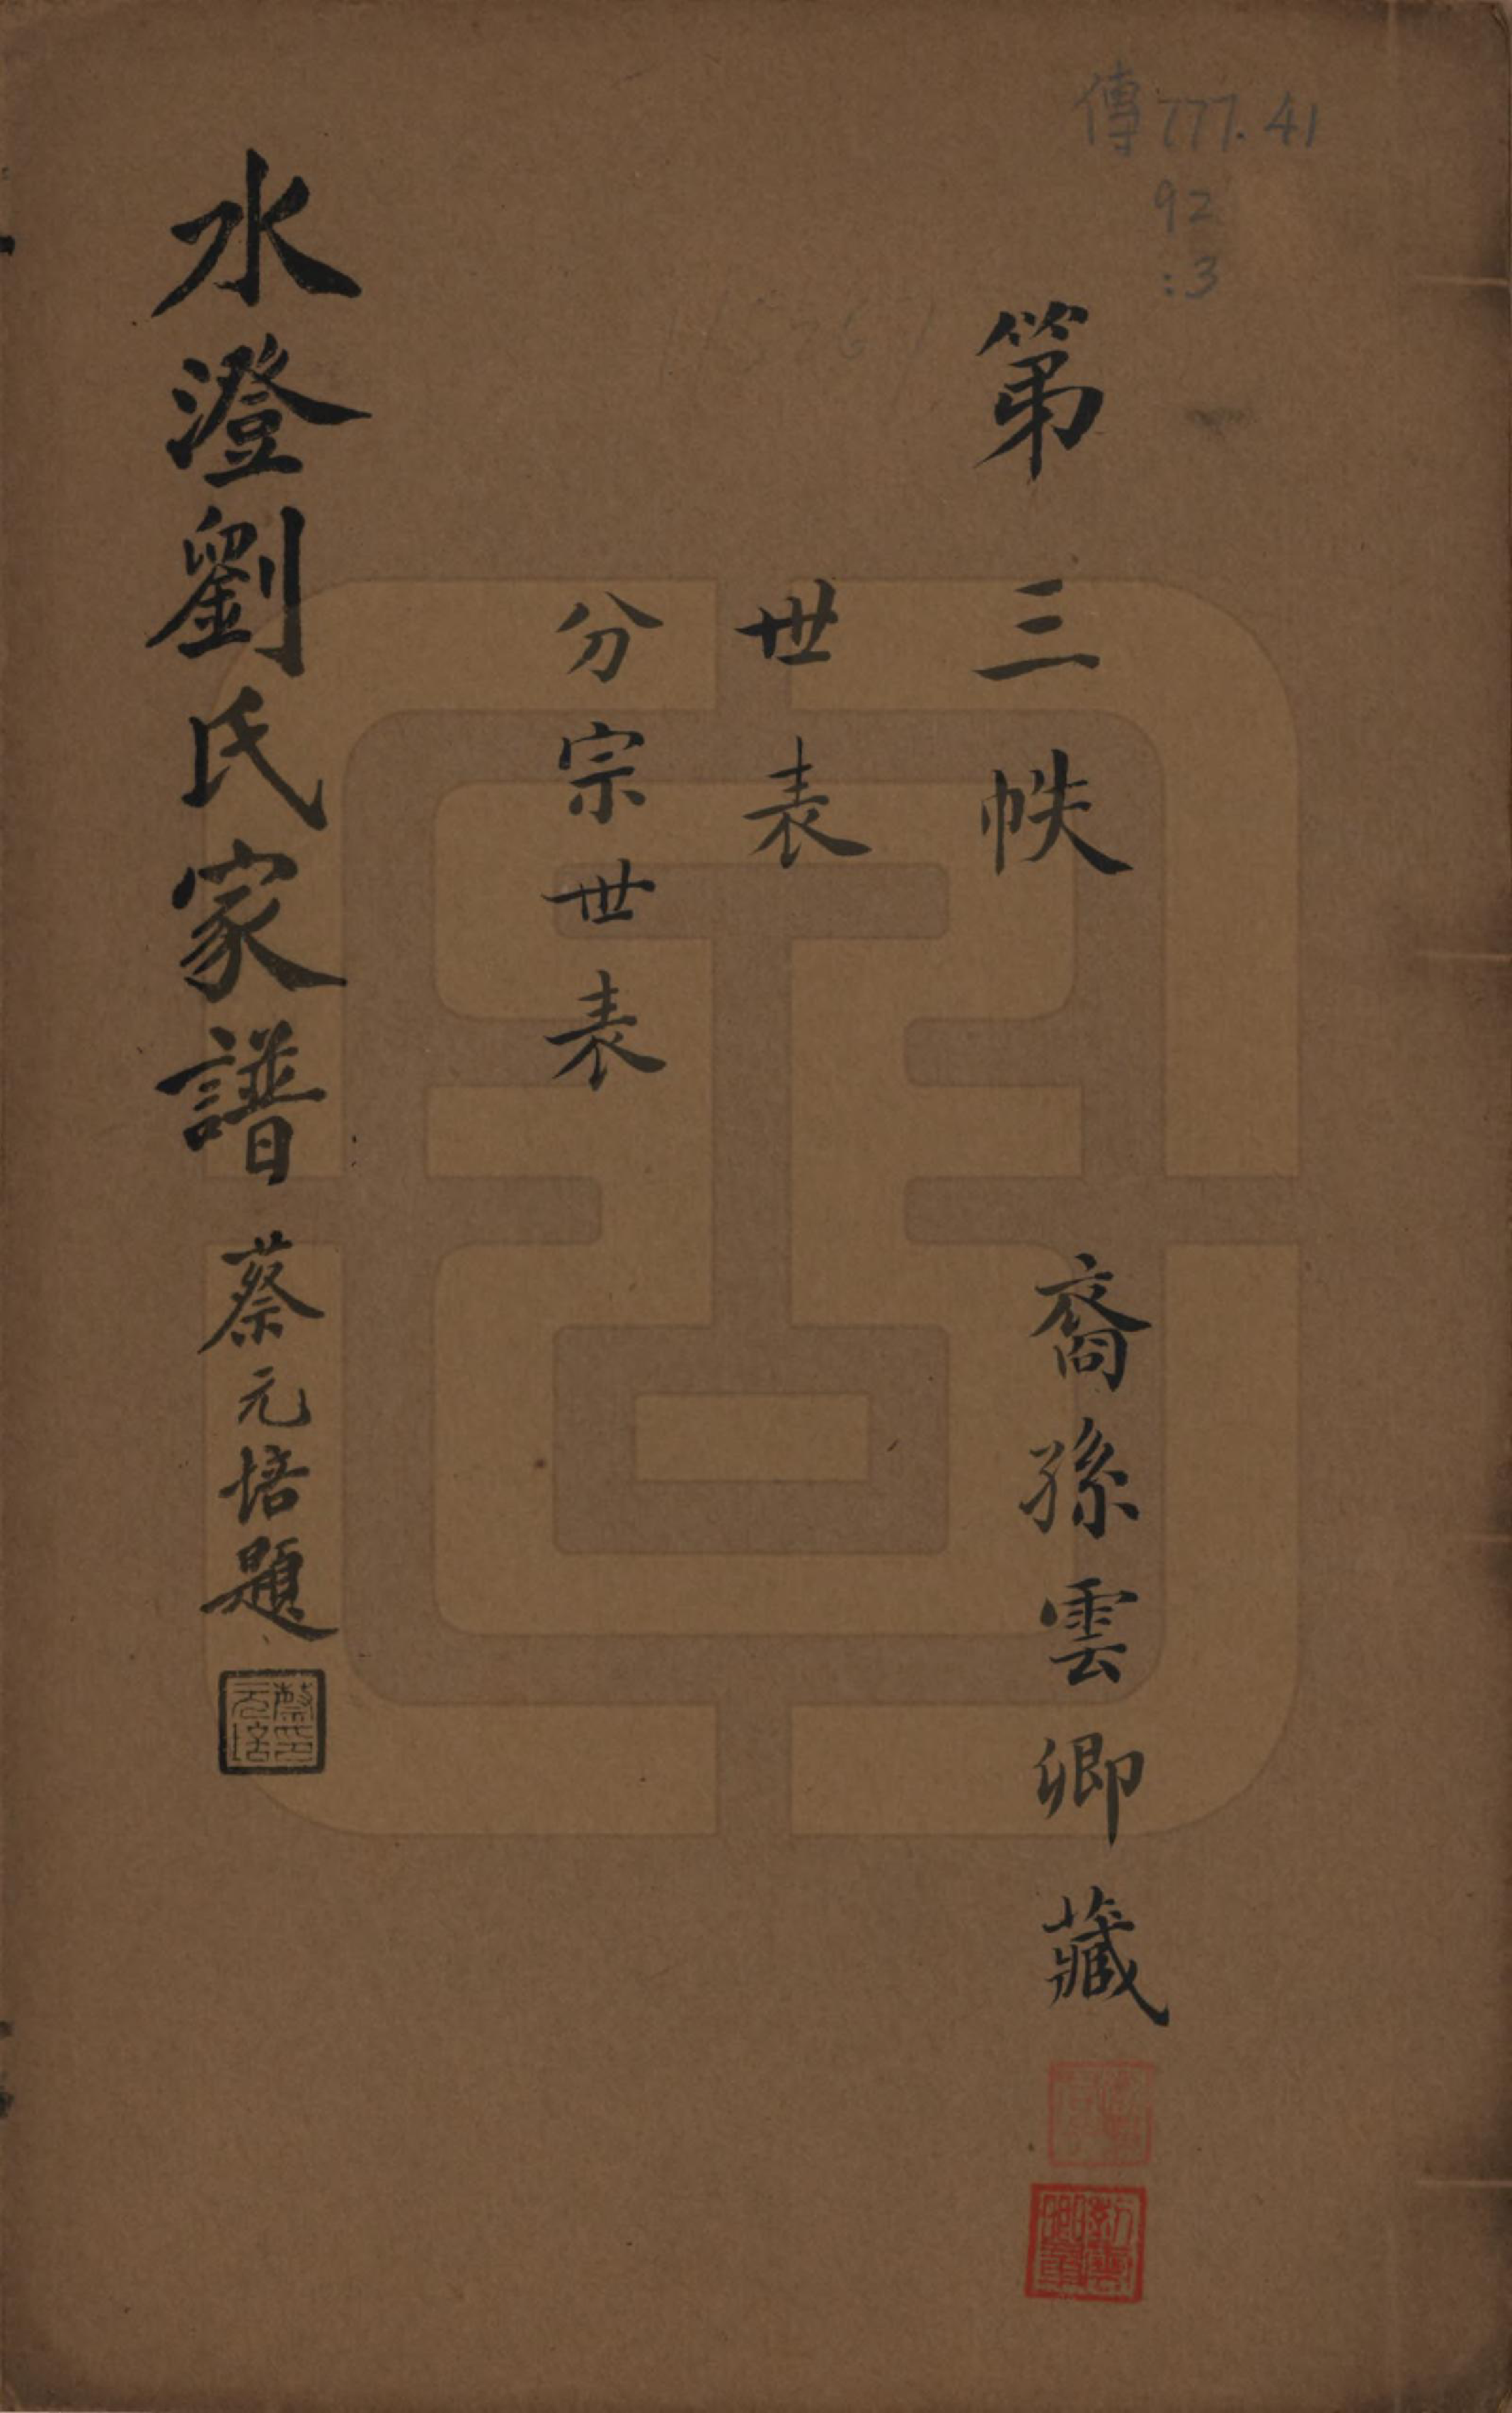 傳777.41
92
:3
第三帙
裔孫雲卿藏
世表
分宗世表
水澄劉氏家譜
蔡元培題